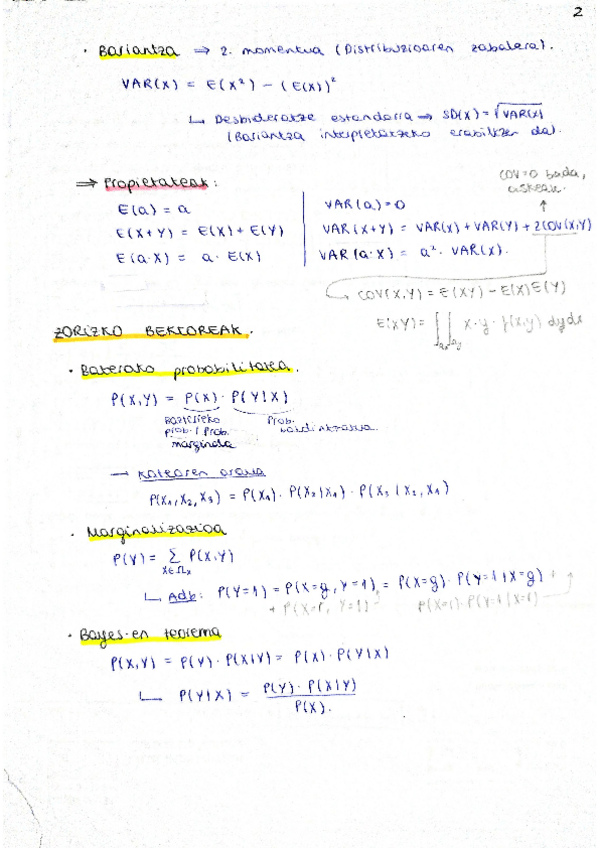 2
· Bariantza ⇒ 2. momentua (Distribuzioaren zabalera).
VAR(X) = E(X²) - (E(X))²
↳ Desbideratze estandarra → SD(X) = √VAR(X)
(Bariantza interpretatzeko erabiltzen da).
⇒ Propietateak:
COV=0 bada,
askeak.
E(a) = a
E(X+Y) = E(X) + E(Y)
E(a·X) = a · E(X)
VAR(a) = 0
VAR(X+Y) = VAR(X) + VAR(Y) + 2COV(X,Y)
VAR(a·X) = a² · VAR(X).
COV(X,Y) = E(XY) - E(X)E(Y)
E(XY) = ∫∫ x·y · f(x,y) dydx
ZORIZKO BEKTOREAK.
· Baterako probabilitatea.
P(X,Y) = P(X) · P(Y|X)
Bazterreko
prob. / Prob.
marginala
Prob.
baldintzatua
→ Katearen araua
P(X₁, X₂, X₃) = P(X₁) · P(X₂|X₁) · P(X₃|X₂, X₁)
· Marginalizazioa
P(Y) = Σ P(X,Y)
X∈Ωx
↳ Adb: P(Y=1) = P(X=g, Y=1) = P(X=g) · P(Y=1|X=g) +
· Bayes-en teorema
P(X,Y) = P(Y) · P(X|Y) = P(X) · P(Y|X)
↳ P(Y|X) = P(Y) · P(X|Y)
P(X).